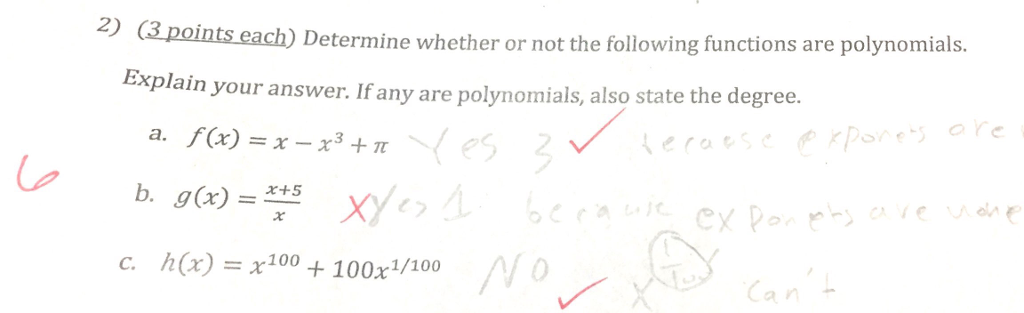 2) (3 points each) Determine whether or not the following functions are polynomials.
Explain your answer. If any are polynomials, also state the degree.
a. f(x) = x − x³ + π Yes 3 ✓ because are
6
b. g(x) = x+5/x X Yes 1 because are
c. h(x) = x¹⁰⁰ + 100x¹/¹⁰⁰ NO ✓ x can't